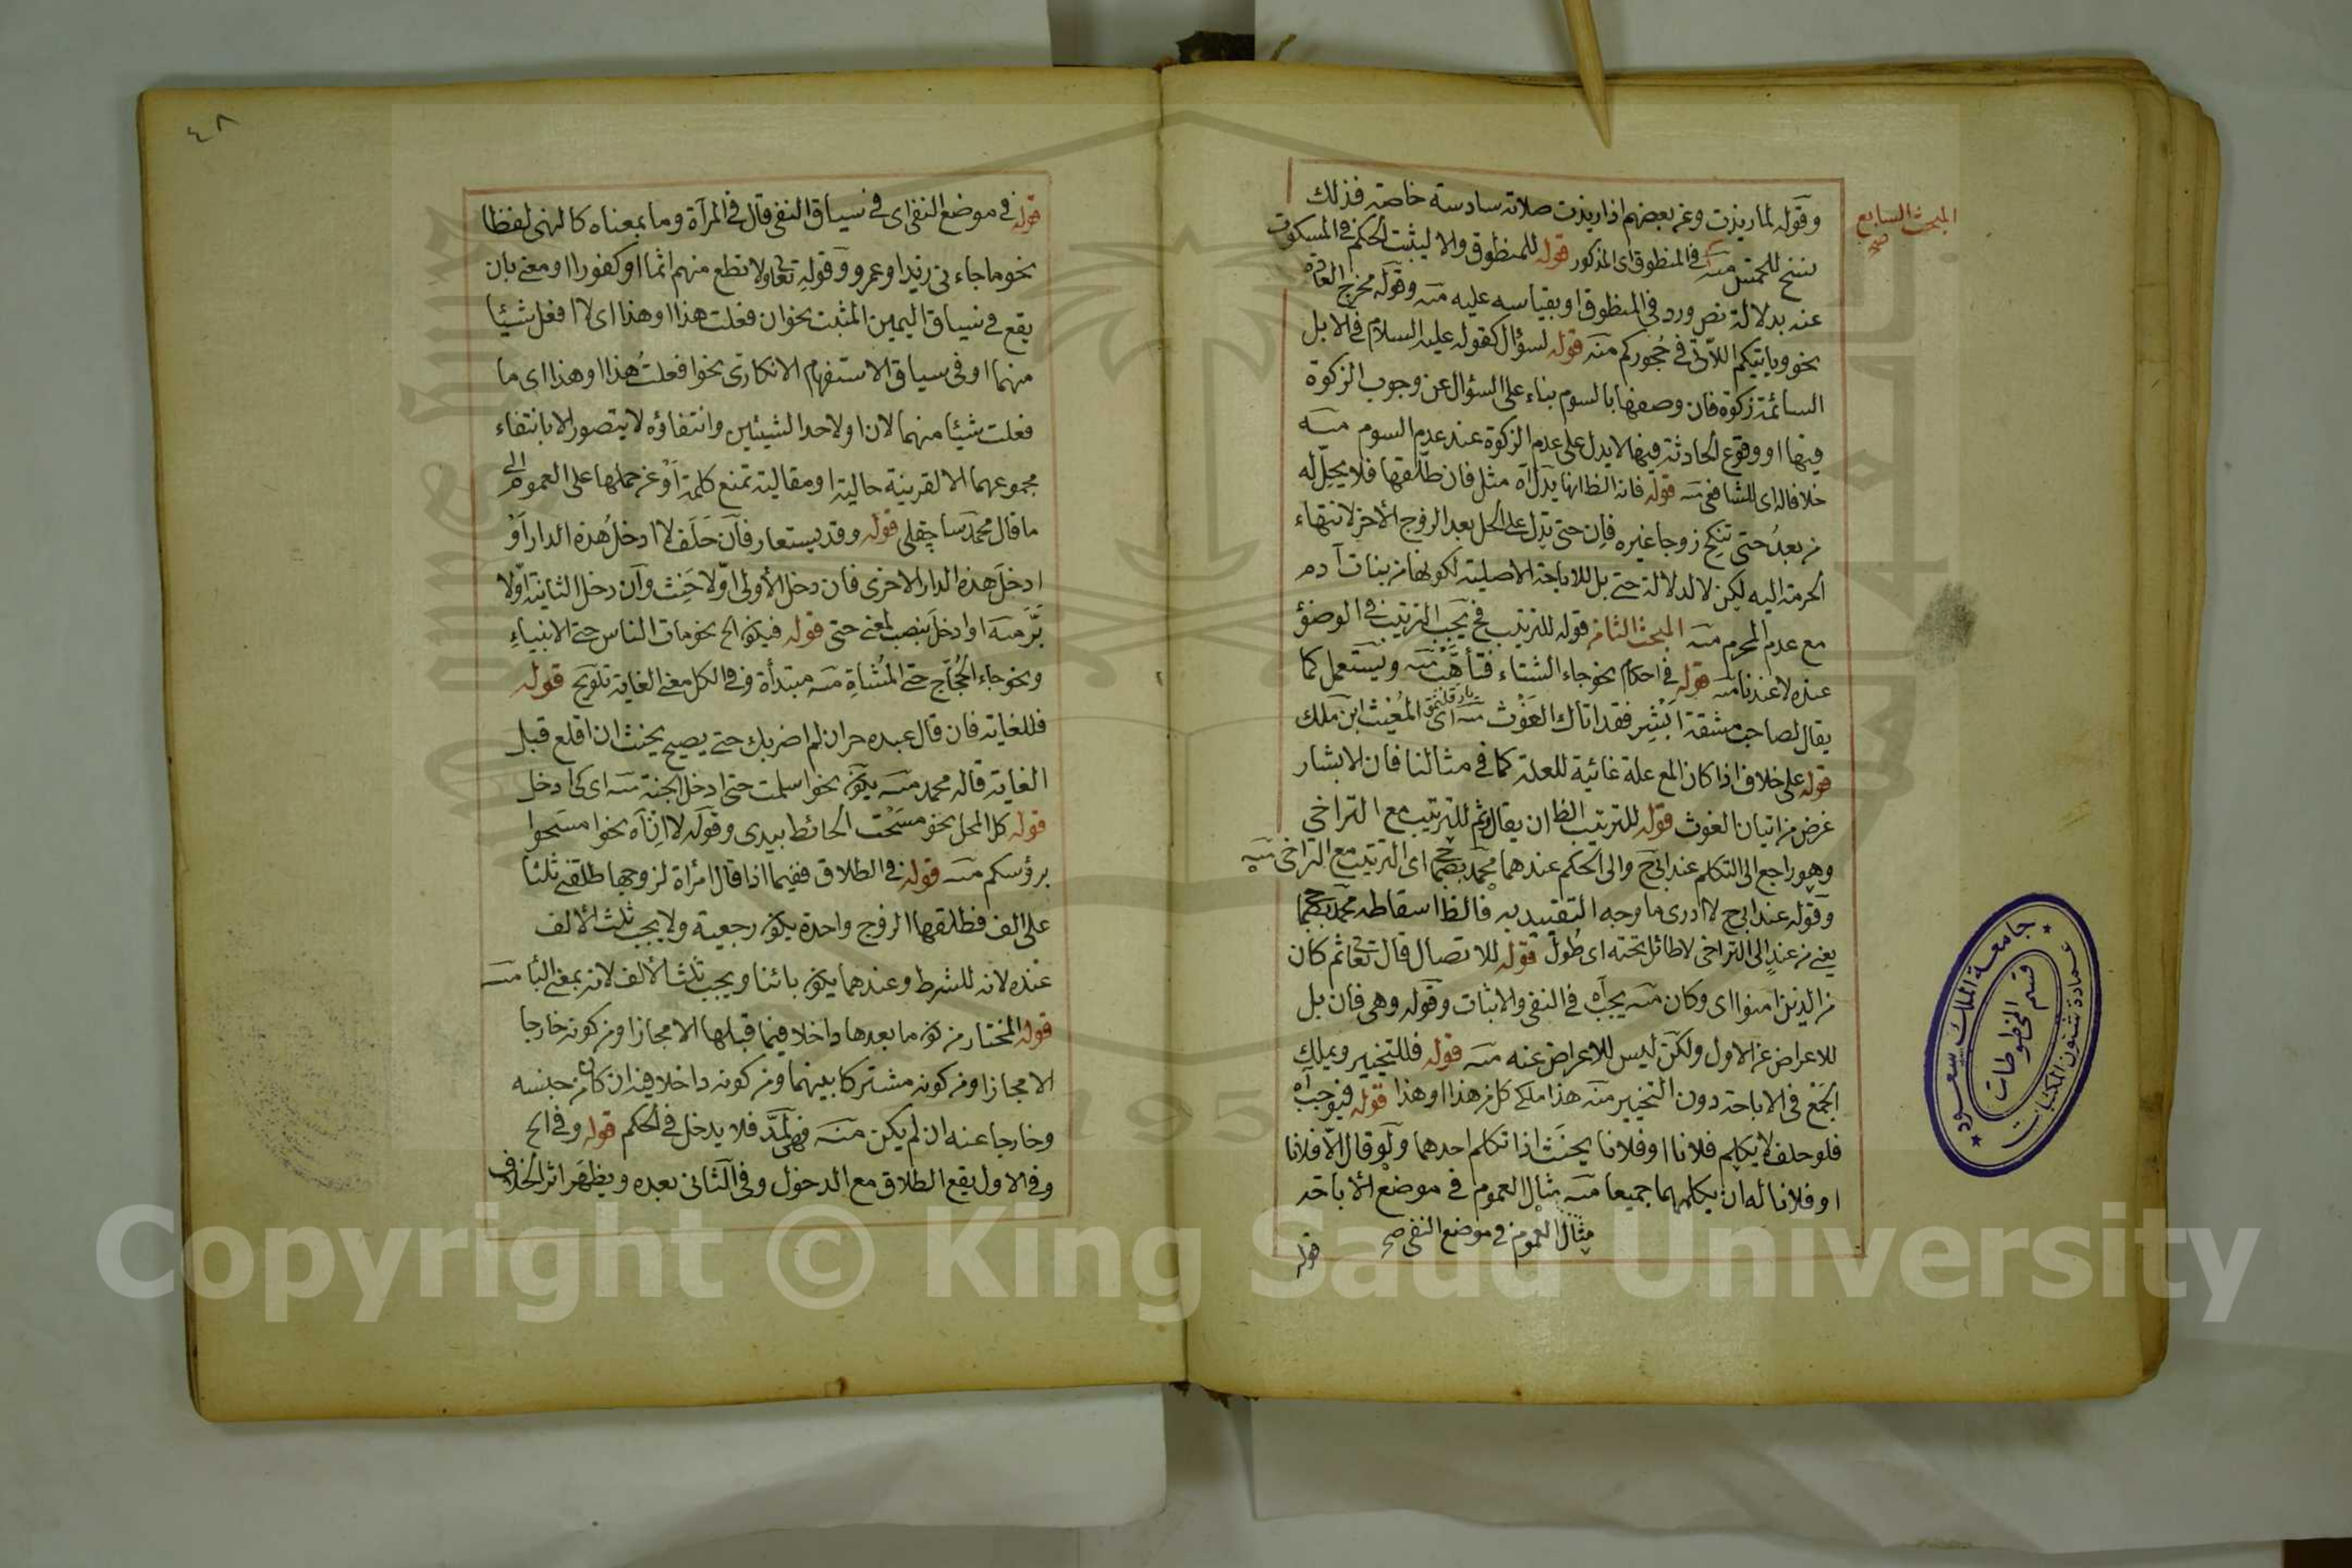 المبحث السابع
صح
وقوله لما ريذت وعن بعضهم اذا ريذت صلاته سادسة خاصة فذلك
نسخ للخمس منه في المنطوق اى المذكور قوله للمنطوق والا ليثبت الحكم في المسكوت
عنه بدلالة نص ورد في المنطوق او بقياسه عليه منه وقوله مخرج العادة
نحو وربائبكم اللاتى في حجوركم منه قوله لسؤال كقوله عليه السلام في الابل
السائمة زكوة فان وصفها بالسوم بناء على السؤال عن وجوب الزكوة
فيها او وقوع الحادثة فيها لا يدل على عدم الزكوة عند عدم السوم منه
خلافا له اى للشافعى منه قوله فانه الظ انها يدل آه مثل فان طلقها فلا يحل له
من بعد حتى تنكح زوجا غيره فان حتى تدل على الحل بعد الزوج الأخر لانتهاء
الحرمة اليه لكن لا لدلالة حتى بل للاباحة الاصلية لكونها من بنات آدم
مع عدم المحرم منه المبحث الثامن قوله للترتيب فح يجب الترتيب في الوضؤ
عنده لا عندنا منه قوله في احكام نحو جاء الشتاء فتأهب منه ويستعمل كما
يقال لصاحب مشقة ابشر فقد اتاك الغوث منه اى المغيث ابن ملك
قوله على خلاف اذا كان المع علة غائية للعلة كما في مثالنا فان الابشار
غرض من اتيان الغوث قوله للترتيب الظ ان يقال ثم للترتيب مع التراخى
وهو راجع الى التكلم عند ابى ح والى الحكم عندهما محمد اى الترتيب مع التراخى منه
وقوله عند ابى ح لا ادرى ما وجه التقييد به فالظ اسقاطه محمد
يعنى من عند الى التراخى لا طائل تحته اى طول قوله للاتصال قال تعا ثم كان
من الذين امنوا اى وكان منه يجب آه في النفى والاثبات وقوله وهى فان بل
للاعراض عن الاول ولكن ليس للاعراض عنه منه قوله فللتخيير ويملك
الجمع في الاباحة دون التخيير منه هذا ملكى كل من هذا او هذا قوله فيوجب آه
فلو حلف لا يكلم فلانا او فلانا يحنث اذا تكلم احدهما ولو قال الا فلانا
او فلانا له ان يكلمهما جميعا منه مثال العموم في موضع الأباحة
مثال العموم في موضع النفى صح
قوله
٤٨
قوله في موضع النفى اى في سياق النفى قال في المرآة وما بمعناه كالنهى لفظا
نحو ما جاءنى زيد او عمرو وقوله تعا ولا تطع منهم اثما او كفورا او معنى بان
يقع في سياق اليمين المثبت نحو ان فعلت هذا او هذا اى لا افعل شيئا
منهما او في سياق الاستفهام الانكارى نحو افعلت هذا او هذا اى ما
فعلت شيئا منهما لان او لاحد الشيئين وانتفاؤه لا يتصور الا بانتفاء
مجموعهما الا لقرينة حالية او مقالية تمنع كلمة او عن حملها على العموم الى
ما قال محمد ساچقلى قوله وقد يستعار فان حلف لا ادخل هذه الدار او
ادخل هذه الدار الاخرى فان دخل الأولى اولا حنث وان دخل الثانية اولا
بر منه او ادخل بنصب لمعنى حتى قوله فيكون الح نحو مات الناس حتى الانبياء
ونحو جاء الحجاج حتى المشاة منه مبتدأة وفى الكل معنى الغاية تلويح قوله
فللغاية فان قال عبده حر ان لم اضربك حتى يصيح يحنث ان اقلع قبل
الغاية قاله محمد منه يكون نحو اسلمت حتى ادخل الجنة منه اى كى ادخل
قوله كل المحل نحو مسحت الحائط بيدى وقوله لا انآه نحو امسحوا
برؤسكم منه قوله في الطلاق ففيما اذا قال امرأة لزوجها طلقنى ثلثا
على الف فطلقها الزوج واحدة يكون رجعية ولا يجب ثلث الألف
عنده لانه للشرط وعندهما يكون بائنا ويجب ثلث الألف لانه بمعنى البا منه
قوله المختار من كون ما بعدها داخلا فيما قبلها الا مجازا ومن كونه خارجا
الا مجازا ومن كونه مشتركا بينهما ومن كونه داخلا فيه ان كان من جنسه
وخارجا عنه ان لم يكن منه فهى لمد فلا يدخل في الحكم قوله وفى الح
وفى الاول يقع الطلاق مع الدخول وفى الثانى بعده ويظهر اثر الخلاف
جامعة الملك سعود
قسم المخطوطات
عمادة شئون المكتبات
Copyright © King Saud University
195